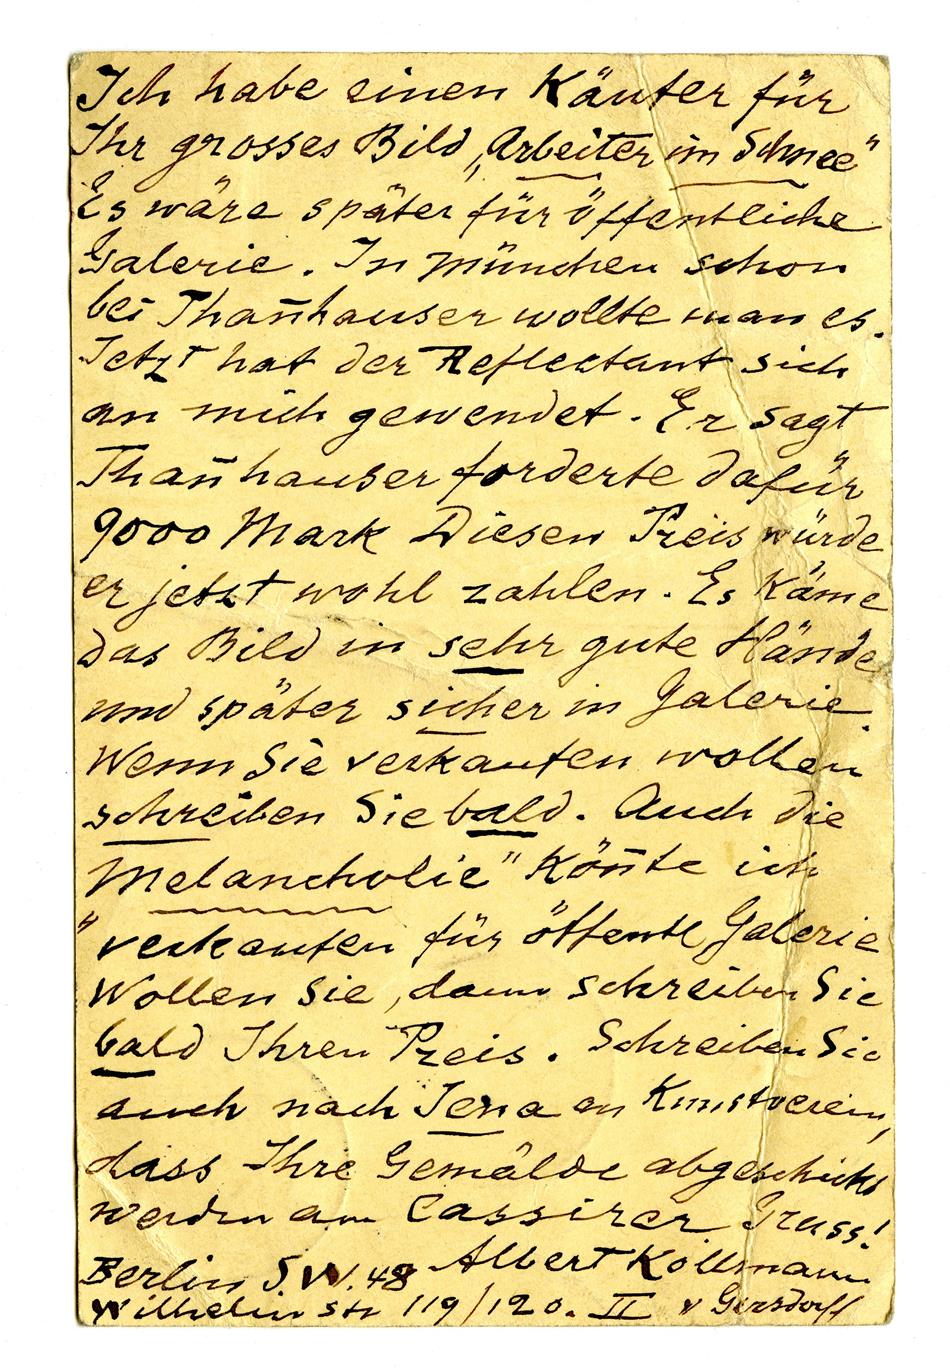 Ich habe einen Käufer für
Ihr grosses Bild „Arbeiter im Schnee“
Es wäre später für öffentliche
Galerie. In München schon
bei Than̄hauser wollte man es.
Jetzt hat der Reflectant sich
an mich gewendet. Er sagt
Than̄hauser forderte dafür
9000 Mark Diesen Preis würde
er jetzt wohl zahlen. Es käme
das Bild in sehr gute Hände
und später sicher in Galerie.
Wenn Sie verkaufen wollen
schreiben Sie bald. Auch die
„Melancholie“ kön̄te ich
verkaufen für öffentl Galerie
Wollen Sie, dann schreiben Sie
bald Ihren Preis. Schreiben Sie
auch nach Jena an Kunstverein,
dass Ihre Gemälde abgeschickt
werden an Cassirer Gruss!
Albert Kollmann
Berlin S.W. 48
Wilhelmstr 119/120. II v Gersdorff